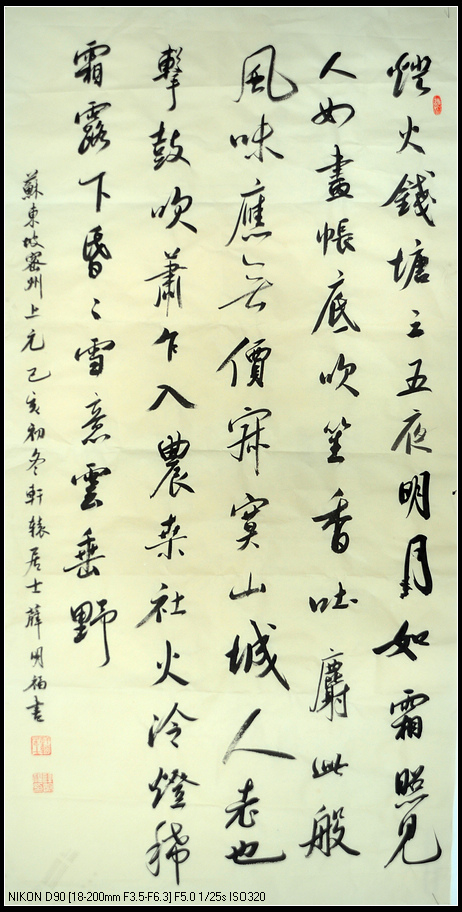 燈火錢塘三五夜明月如霜照見
人如畫帳底吹笙香吐麝此般
風味應無價寂寞山城人老也
擊鼓吹蕭乍入農桑社火冷燈稀
霜露下昏〻雪意雲垂野
蘇東坡密州上元己亥初冬軒辕居士薛明福書
NIKON D90 [18-200mm F3.5-F6.3] F5.0 1/25s ISO320